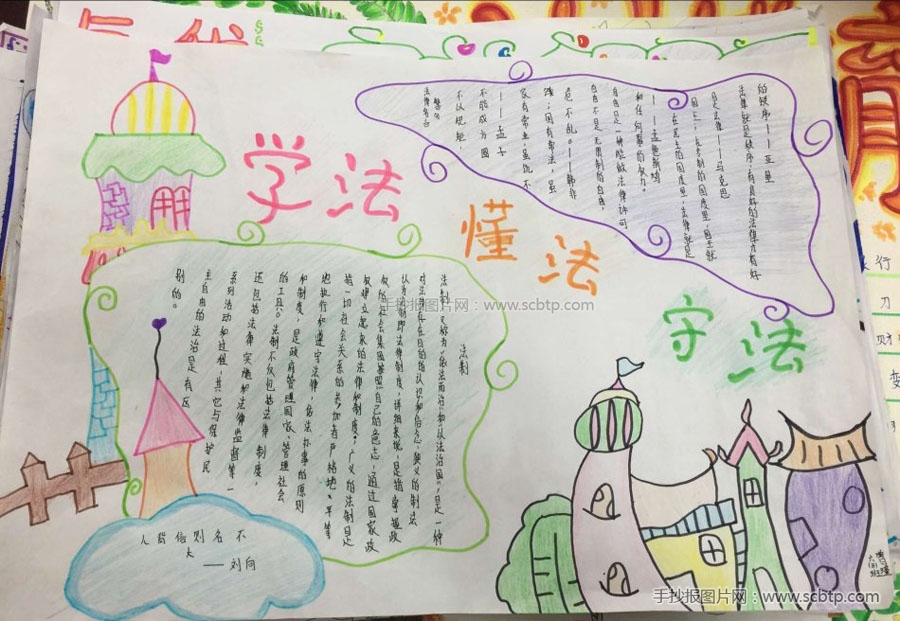 学法
懂法
守法
法律名言
警句
不以规矩，
不能成方圆
——孟子
家有常业，虽饥不
饿；国有常法，虽
危不乱。——韩非
自由不是无限制的自由，
自由是一种能做法律许可
和任何事的权力。
——孟德斯鸠
在民主的国度里，法律就是
国王；在专制的国度里，国王就
是法律——马克思
法律就是秩序，有良好的法律才有好
的秩序——亚里
法制
法制又称为"依法而治"和"以法治国"，是一种
对法律存在目的的认识和信念，狭义的制法
认为，法制即法律制度，详细来说，是指掌握政
权的社会集团按照自己的意志，通过国家政
权建立起来的法律和制度。广义的法制是
指一切社会关系的
地执行和遵守法律，依法办事的原则
和制度，是政府管理国家、管理社会
的工具。法制不仅包括法律制度，
还包括法律实施和法律监督等一
系列活动和过程，其它与保护民
主自由的法治是有区
别的。
人背信则名不
——刘向
手抄报图片网：www.scbtp.com
手抄报图片网：www.scbtp.com